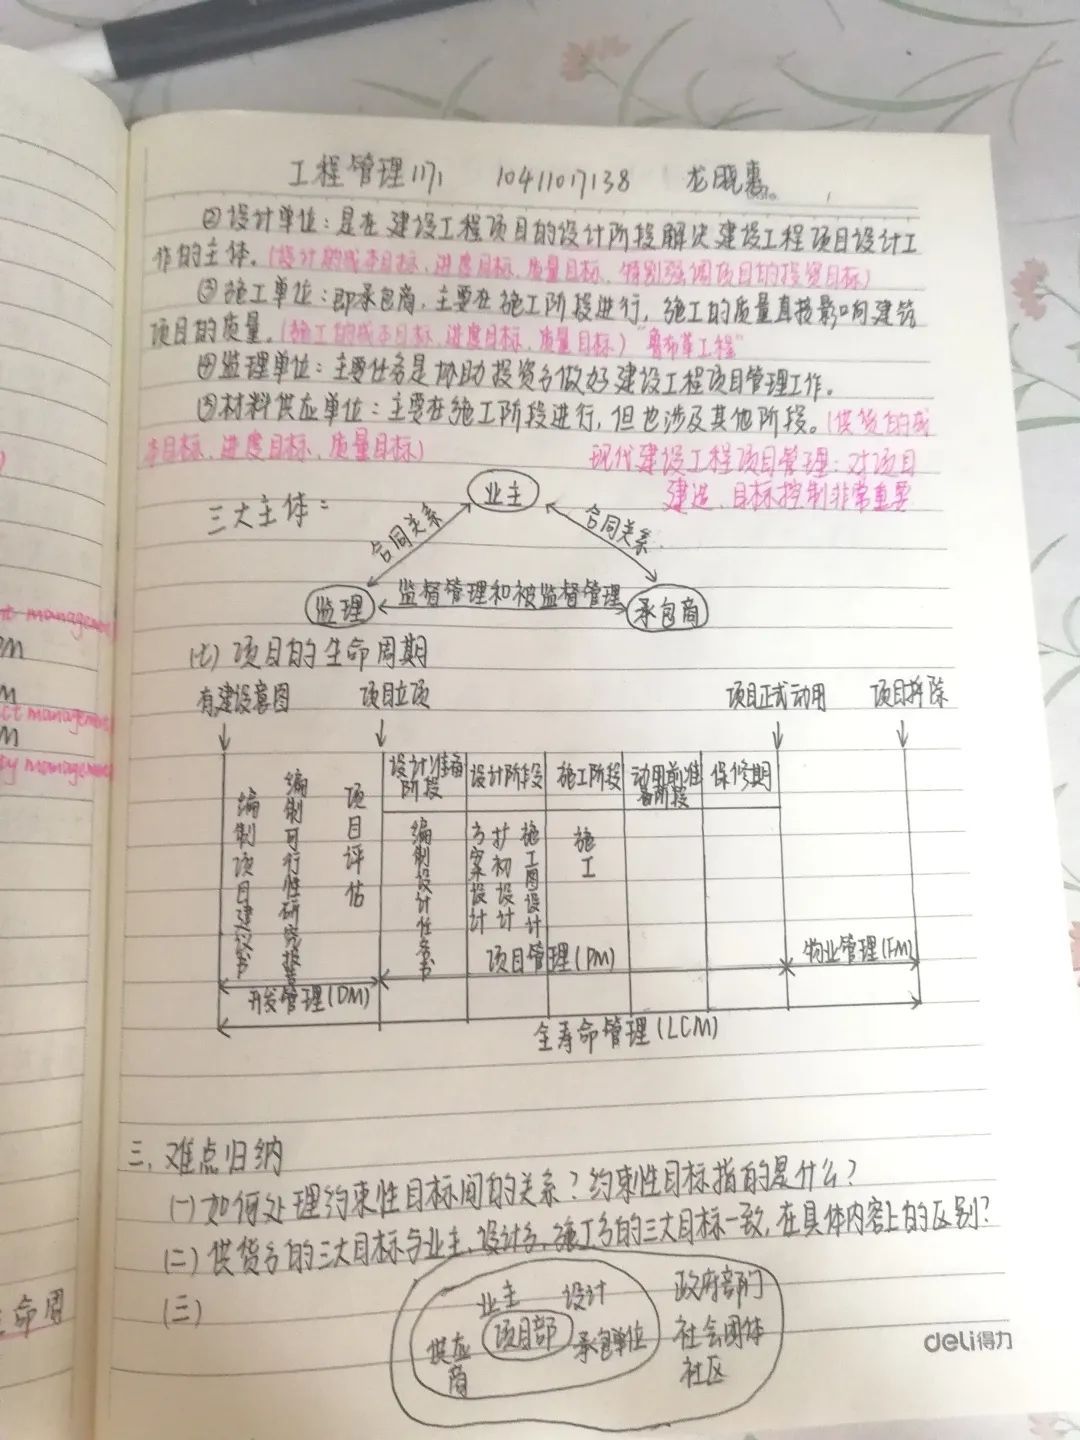 工程管理1171 10411017138 龙晓惠
②设计单位：是在建设工程项目的设计阶段解决建设工程项目设计工
作的主体。(设计的成本目标、进度目标、质量目标、特别强调项目的投资目标)
③施工单位：即承包商，主要在施工阶段进行，施工的质量直接影响建筑
项目的质量。(施工的成本目标、进度目标、质量目标)"鲁布革工程"
④监理单位：主要任务是协助投资方做好建设工程项目管理工作。
⑤材料供应单位：主要在施工阶段进行，但也涉及其他阶段。(供货的成
本目标、进度目标、质量目标)
现代建设工程项目管理：对项目
建造、目标控制非常重要
三大主体：
业主
合同关系
合同关系
监理
监督管理和被监督管理
承包商
(七)项目的生命周期
有建设意图 项目立项 项目正式动用 项目拆除
设计准备阶段 设计阶段 施工阶段 动用前准备阶段 保修期
编制项目建议书
编制可行性研究报告
项目评估
编制设计任务书
方案设计
扩初设计
施工图设计
施工
项目管理(PM)
物业管理(FM)
开发管理(DM)
全寿命管理(LCM)
三、难点归纳
(一)如何处理约束性目标间的关系？约束性目标指的是什么？
(二)供货方的三大目标与业主、设计方、施工方的三大目标一致，在具体内容上的区别？
(三)
业主 设计 政府部门
供应商 项目部 承包单位 社会团体
社区
deli得力
nt management
PM
M
ct management
M
ty management
生命周